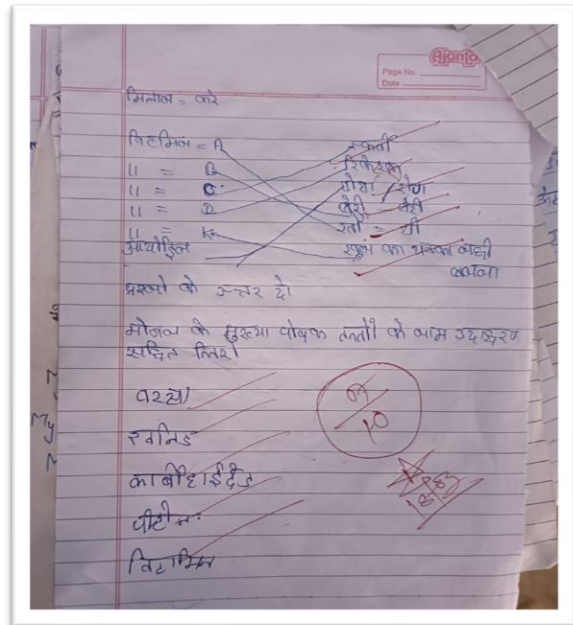 Ajanta
Page No.
Date
मिलान = करे
विटामिन = A स्कर्वी
" = B रिकेट्स
" = C घेंघा / रोग
" = D बेरी - बेरी
" = K रतौं = धी
आयोडिन खून का थक्का नही
बनना
प्रश्नो के उत्तर दे।
भोजन के मुख्या पोषक तत्वों के नाम उदाहरण
सहित लिखे।
वसा
खनिज
कार्बोहाईड्रेड
विटामिन
10